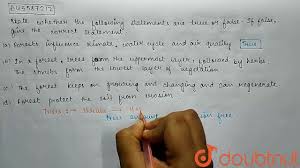 State whether the following statements are true or false. If false,
give the correct statement
a) Forests influence climate, water cycle and air quality True
b) In a forest, trees form the uppermost layer, followed by herbs
The shrubs form the lowest layer of vegetation
c) The forest keeps on growing and changing and can regenerate
d) Forest protect the soil from erosion
Trees :→ shrubs →
doubtnut